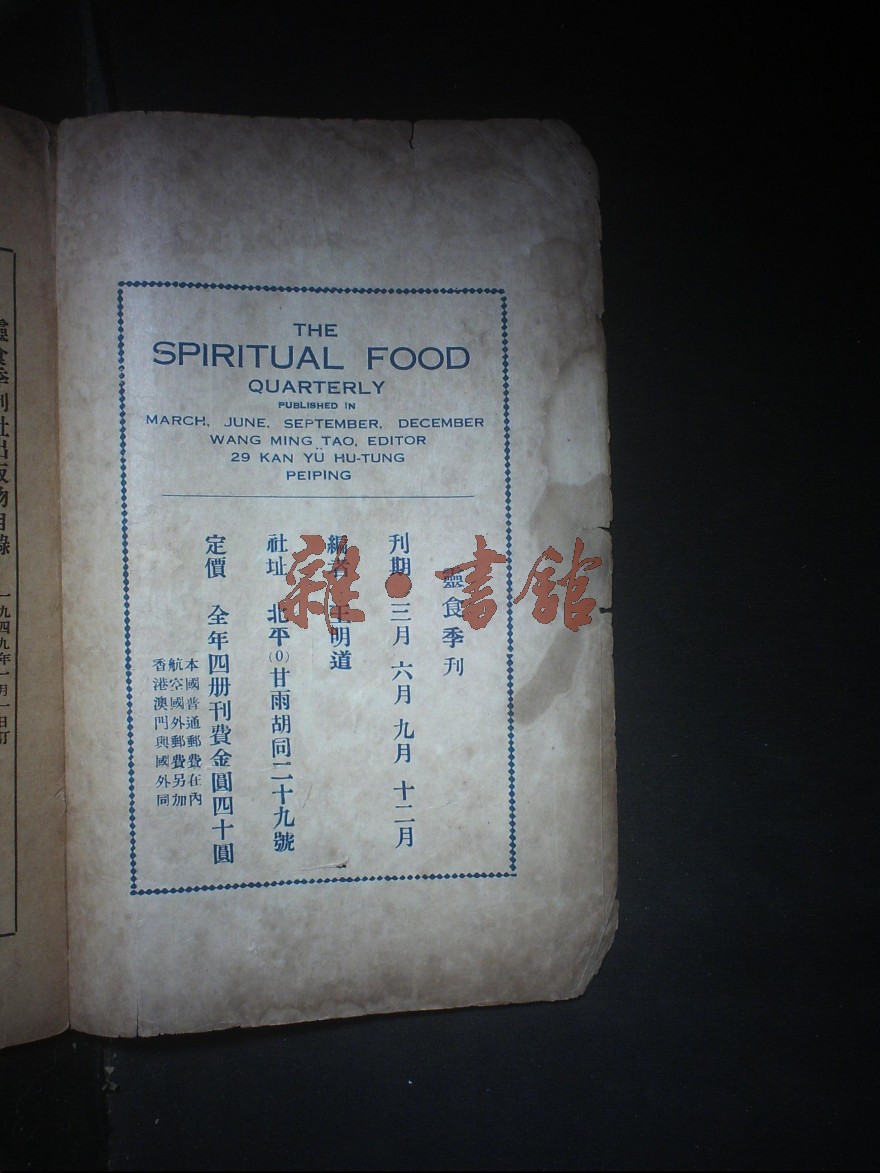 THE
SPIRITUAL FOOD
QUARTERLY
PUBLISHED IN
MARCH, JUNE, SEPTEMBER, DECEMBER
WANG MING TAO, EDITOR
29 KAN YÜ HU-TUNG
PEIPING
靈食季刊
刊期 三月 六月 九月 十二月
編者 王明道
社址 北平(0)甘雨胡同二十九號
定價 全年四册刊費金圓四十圓
本國普通郵費在內
航空國外郵費另加
香港澳門與國外同
雜·書館
靈食季刊社出版物目錄 一九四九年一月一日訂